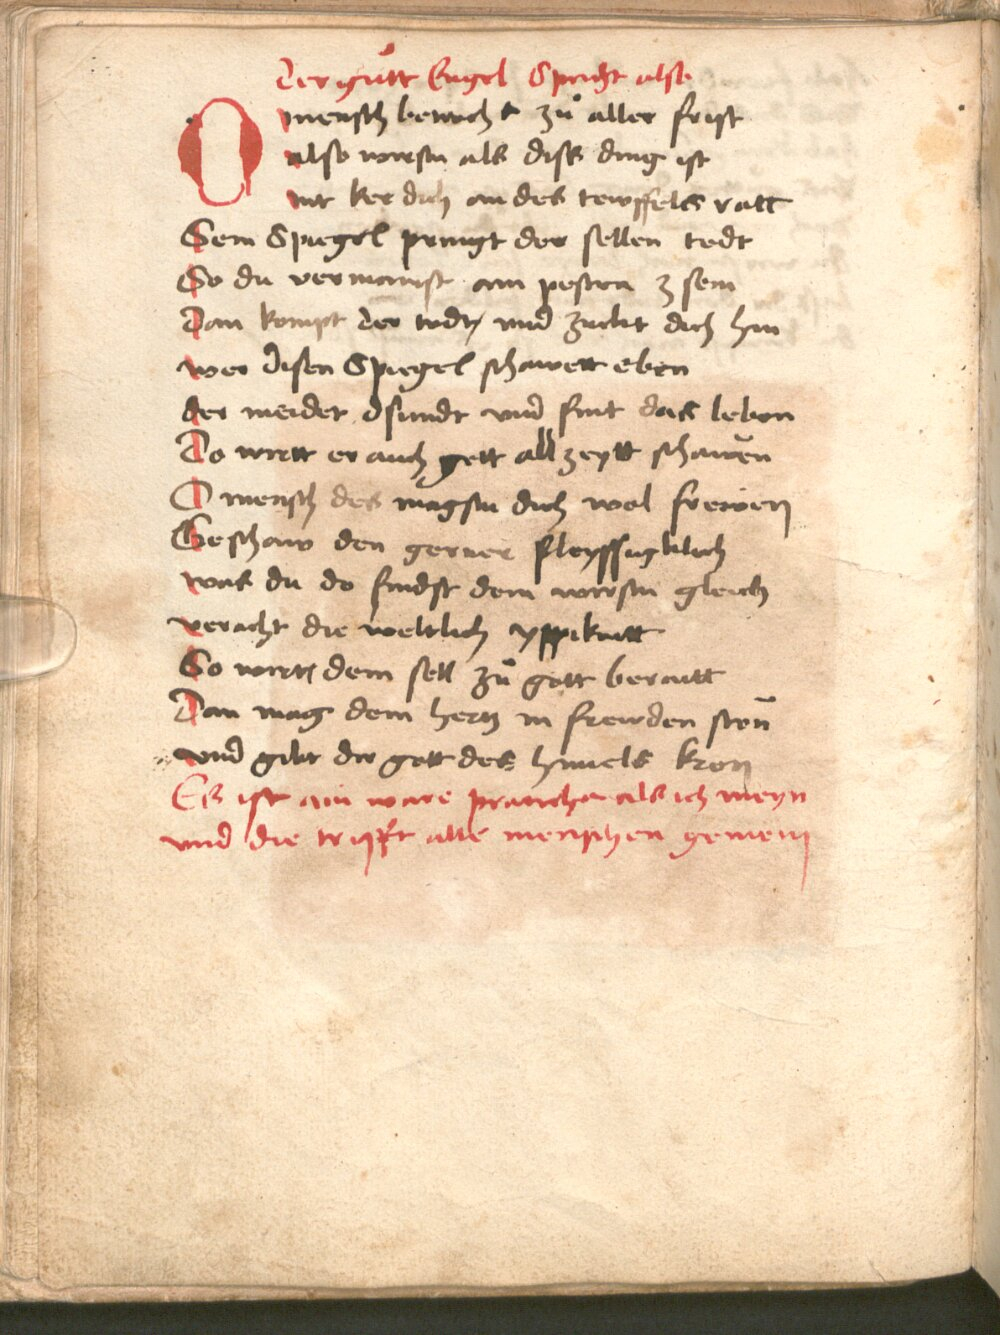 Der gůtt Engel Spricht also
O mensch betracht zů aller frist
also wirstu als diss ding ist
nit ker dich an des tewffels ratt
Sein Spiegel pringt der sellen todt
So du vermainst am pesten zsein
Dan kompt der todt vnd zuckt dich hin
wer disen Spiegel schawett eben
der meidet dsundt vnd fint das leben
Do wirtt er auch gott allzeytt schawen
O mensch des magstu dich wol frewen
Beschaw den gerner fleyssigklich
was du do findst dem wirstu gleich
veracht die weltlich yppikaitt
So wirt dein sell zů gott beraitt
Dan mag dein hertz in frewden ston
vnd gibt dir gott des himels kron
Es ist ain ware practicha als ich meyn
vnd die trifft alle menschen gemein